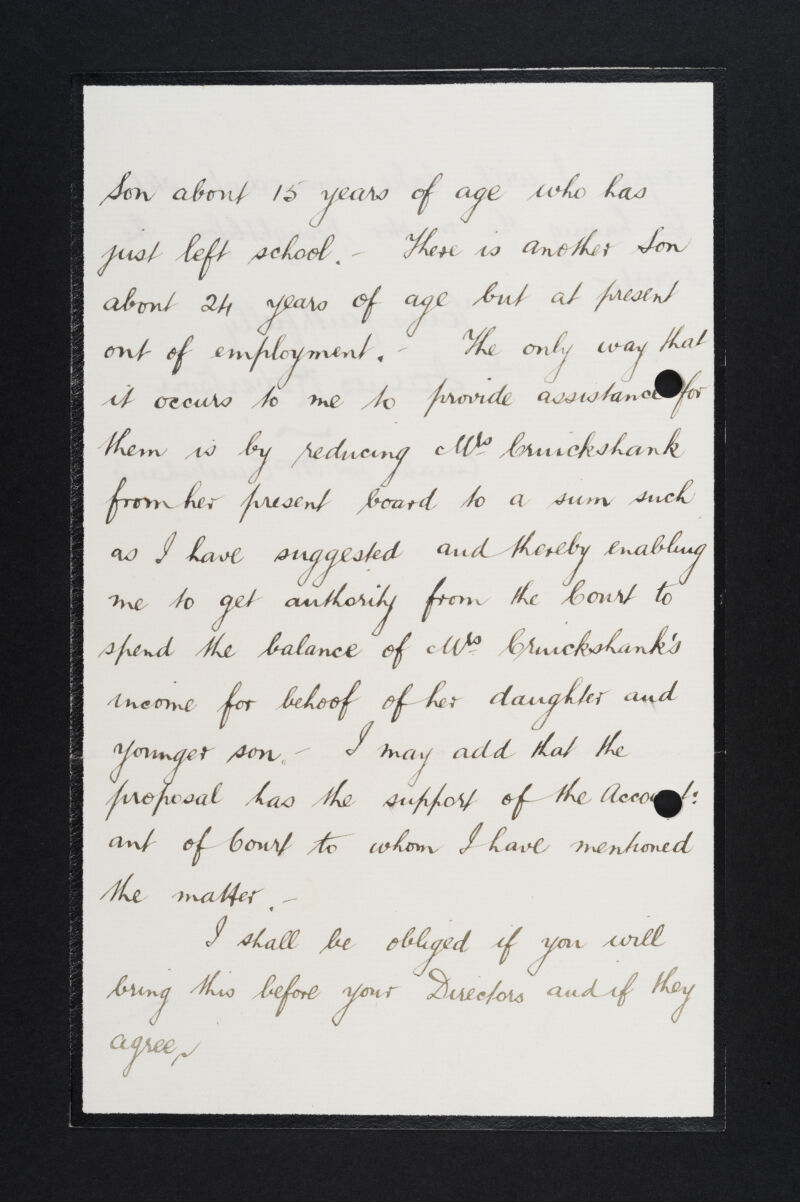 Son about 15 years of age who has
just left school. – There is another Son
about 24 years of age but at present
out of employment. – The only way that
it occurs to me to provide assistance for
them is by reducing Mrs Cruickshank
from her present board to a sum such
as I have suggested and thereby enabling
me to get authority from the Court to
spend the balance of Mrs Cruickshank's
income for behoof of her daughter and
younger son. – I may add that the
proposal has the support of the Account:
ant of Court to whom I have mentioned
the matter. –
I shall be obliged if you will
bring this before your Directors and if they
agree,